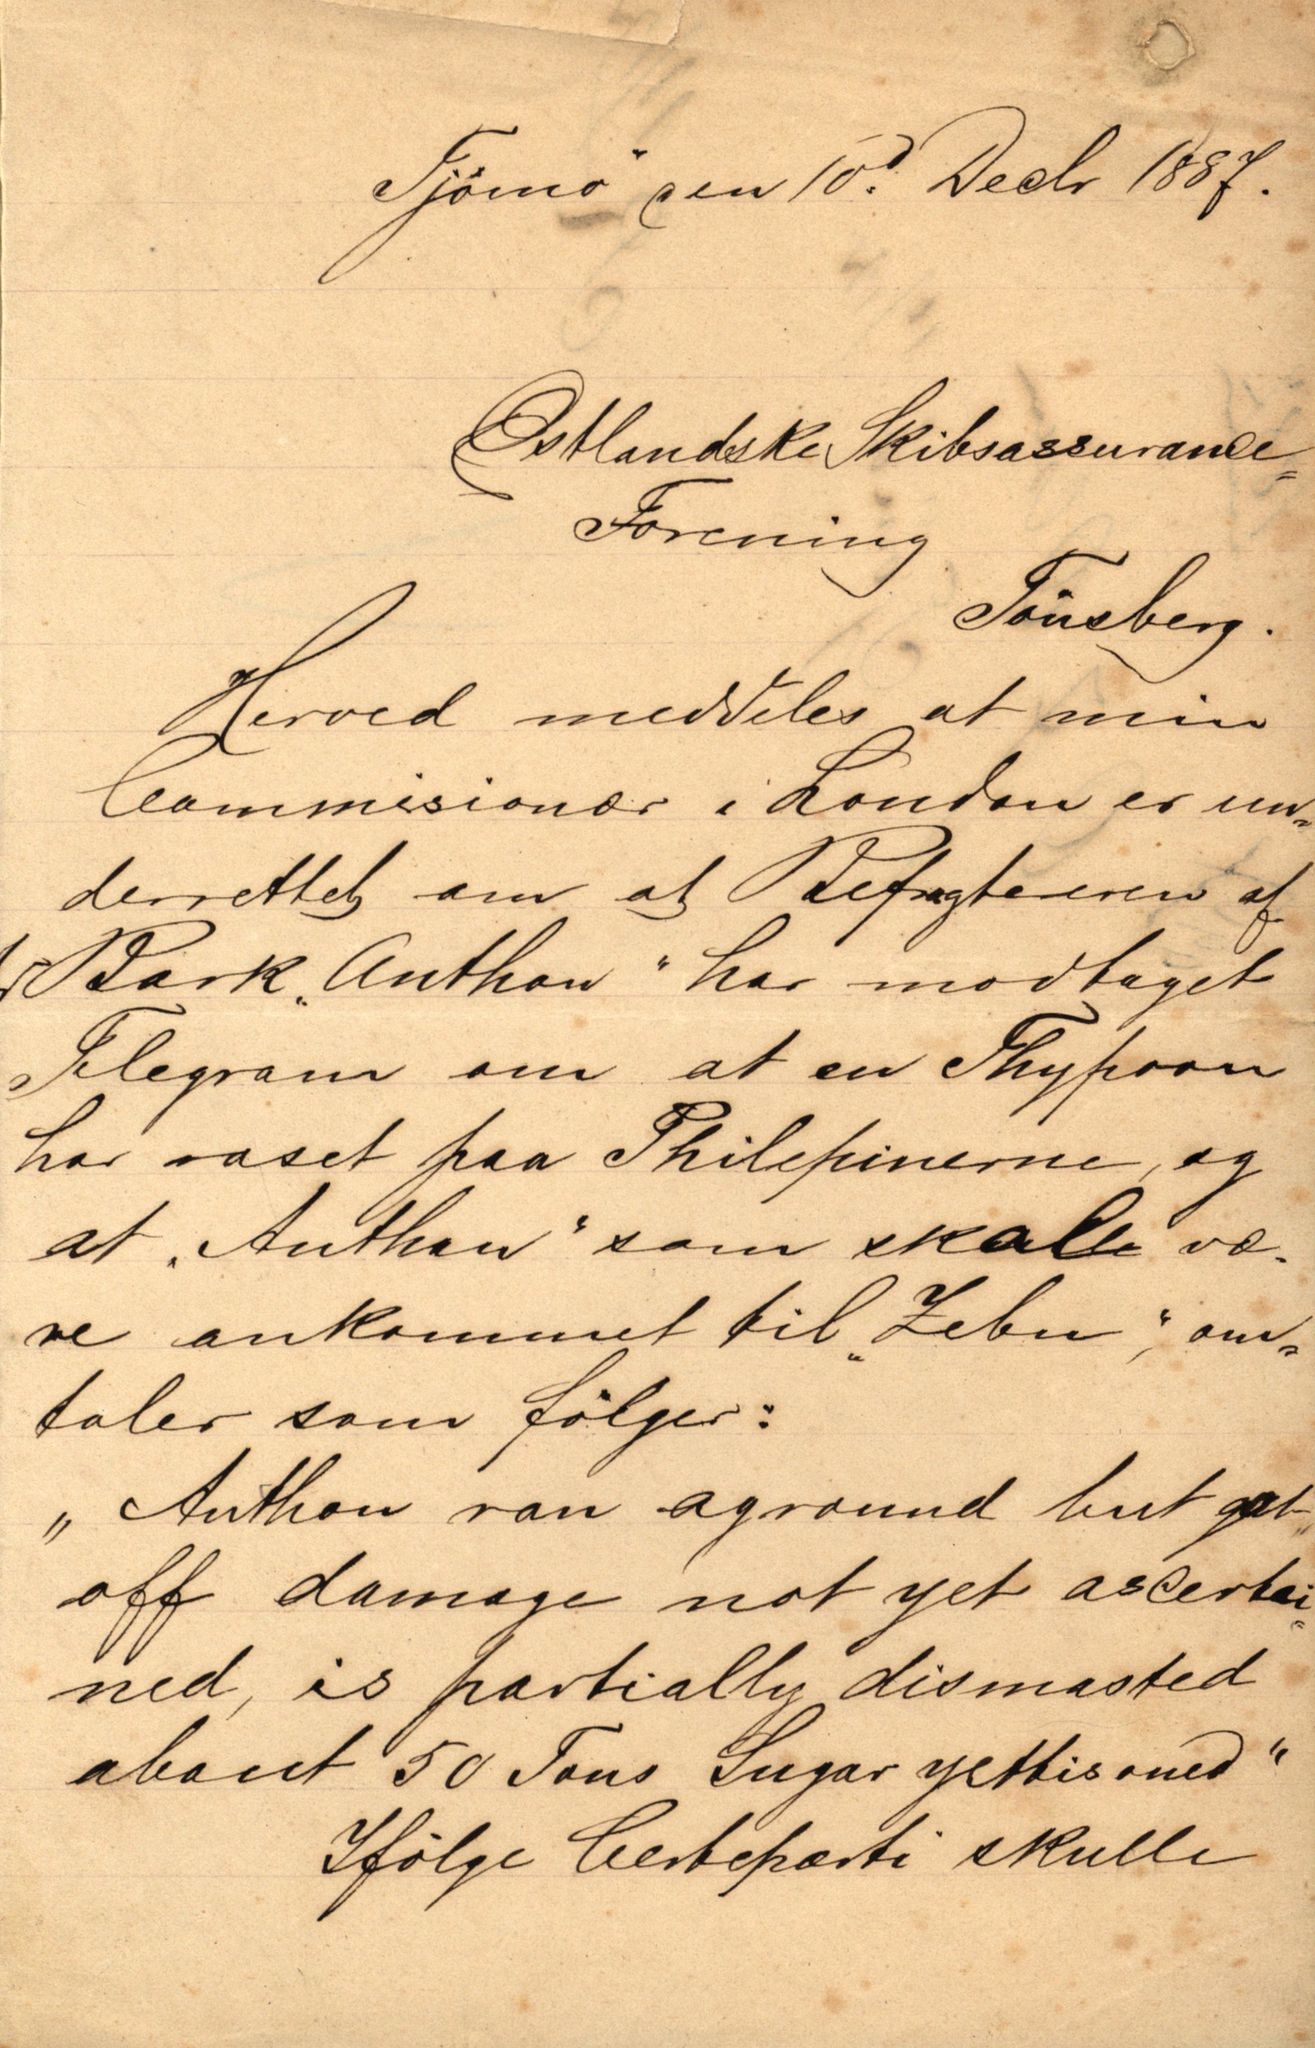 Tjömö den 10d Decbr 1887.
Östlandske Skibsassurance=
Forening
Tönsberg.
Herved meddeles at min
Commisionær i London er un-
derrettet om at Befragteren af
Bark „Anthon" har modtaget
Telegram om at en Thypoon
har raset paa Philepinerne, og
at „Anthon" som skulle væ-
re ankommet til „Zebu", om-
taler som fölger:
„Anthon ran aground but got
off damage not yet ascertai-
ned, is partially dismasted
about 50 Tons Sugar "
Ifölge Certeparti skulle